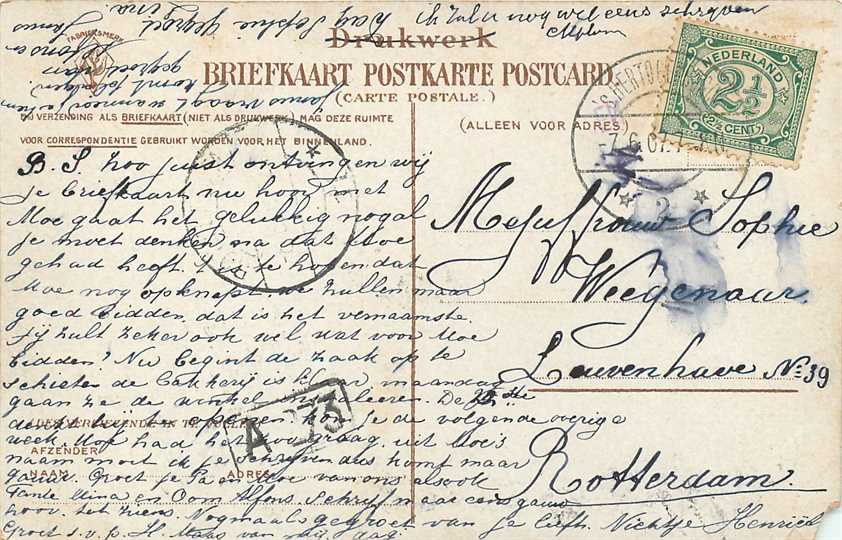 ik zal u nog wel eens schryven
Dag Sophie gegroet
FABRIEKSMERK
Drukwerk
BRIEFKAART POSTKARTE POSTCARD
(CARTE POSTALE.)
BIJ VERZENDING ALS BRIEFKAART (NIET ALS DRUKWERK) MAG DEZE RUIMTE
VOOR CORRESPONDENTIE GEBRUIKT WORDEN VOOR HET BINNENLAND.
(ALLEEN VOOR ADRES)
NEDERLAND
2½
(2½ CENT)
'S HERTOG
7.6.07
2
B. S. Zoo juist ontvingen wij
je briefkaart nu hoor met
Moe gaat het gelukkig nogal
je moet denken na dat Moe
gehad heeft. 't is te hopen dat
Moe nog opknapt. we zullen maar
goed bidden, dat is het vernaamste.
jij zult zeker ook wel wat voor Moe
bidden? Nu begint de zaak op te
schieten de bakkerij is klaar maandag
gaan ze de winkel
de volgende overige
week. Moe had het zoo graag, uit Moe's
naam moet ik je schrijven dus komt maar
gauw. Groet je Pa en Moe van ons alsook
Tante Mina en Oom Alfons schrijf maar eens gauw
hoor. tot ziens Nogmaals gegroet van je liefh. Nichtje Henriët
Groet s.v.p. H. Maas van mij dag
AFZENDER
NAAM
ADRES
A 273
Mejuffrouw Sophie
Weegenaar
Leuvenhave No 39
Rotterdam.